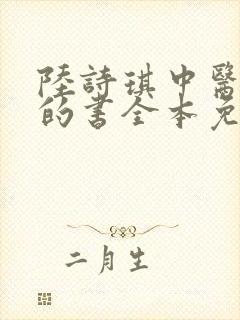 陸詩琪中醫
的書全本免
二月生